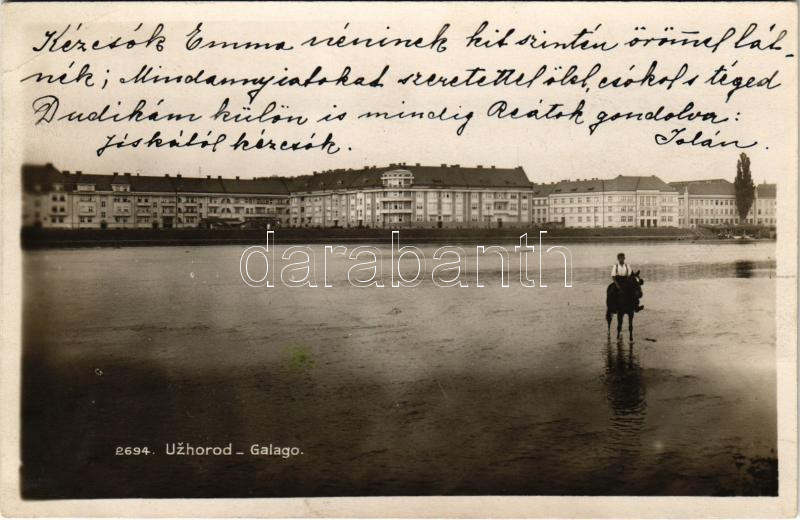 Kézcsók Emma néninek kit szintén örömmel lát-
nék; Mindannyiatokat szeretettel ölel, csókol s téged
Dudikám külön is mindig Reátok gondolva:
Jóskától kézcsók. Jolán.
darabanth
2694. Užhorod - Galago.